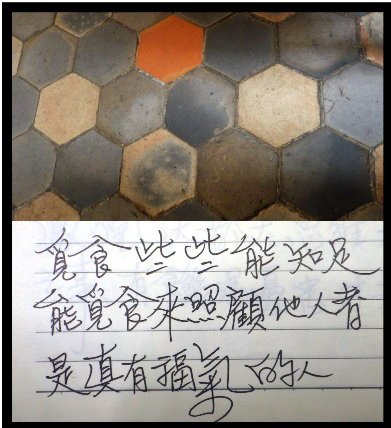 覓食些些能知足
能覓食來照顧他人者
是真有福氣的人